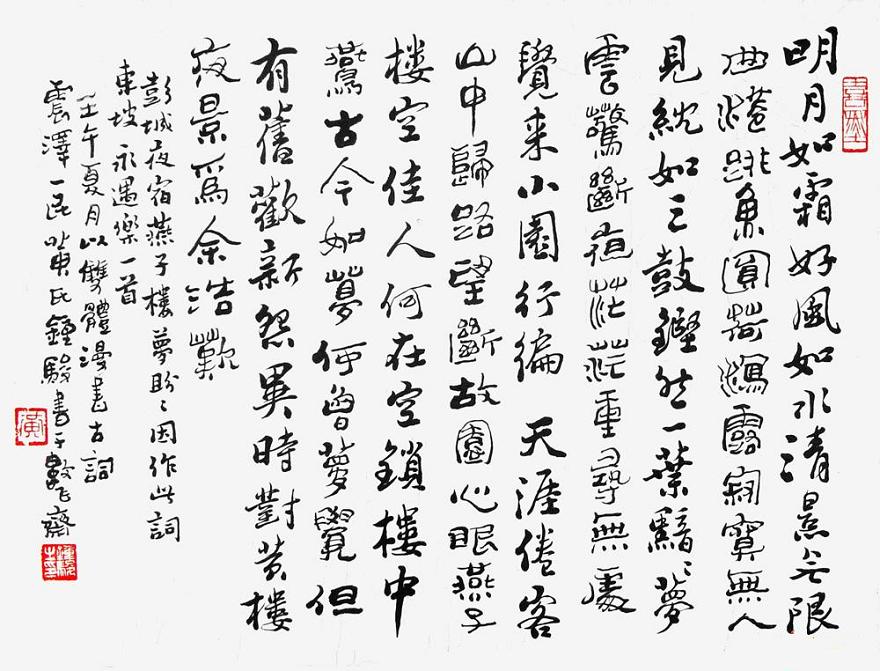 明月如霜好風如水清景无限
曲港跳魚圓荷瀉露寂寞無人
見紞如三鼓鏗然一葉黯〻夢
雲驚斷夜茫茫重尋無處
覺来小園行徧 天涯倦客
山中歸路望斷故園心眼燕子
樓空佳人何在空鎖樓中
鷰古今如夢何曾夢覺但
有舊歡新怨異時對黄樓
夜景爲余浩歎
彭城夜宿燕子樓夢盼〻因作此詞
東坡永遇樂一首
壬午夏月以雙體漫書古詞
震澤一民黄氏鍾駿書于齋
黄